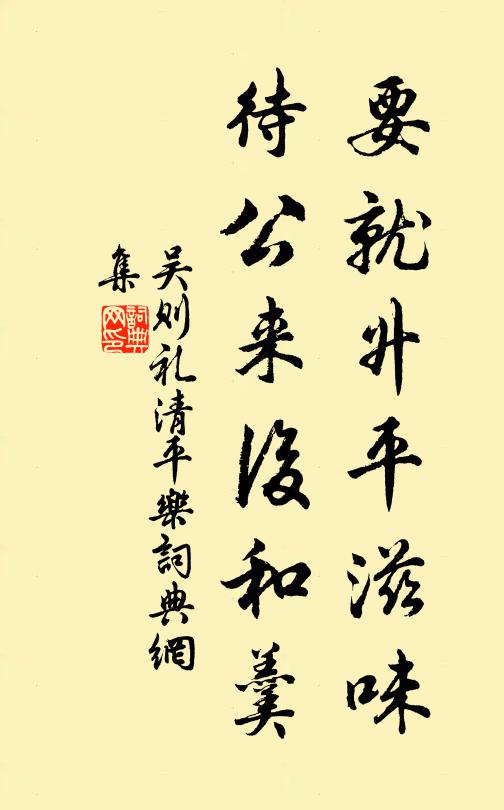 要就升平滋味
待公来後和羹
吴则礼清平樂詞典網
集
詞典网印